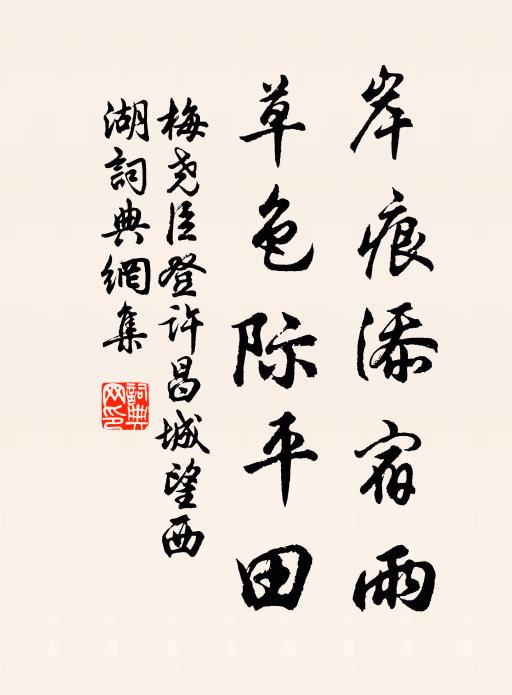 岸痕添宿雨
草色际平田
梅尧臣登许昌城望西
湖詞典網集
詞典网印